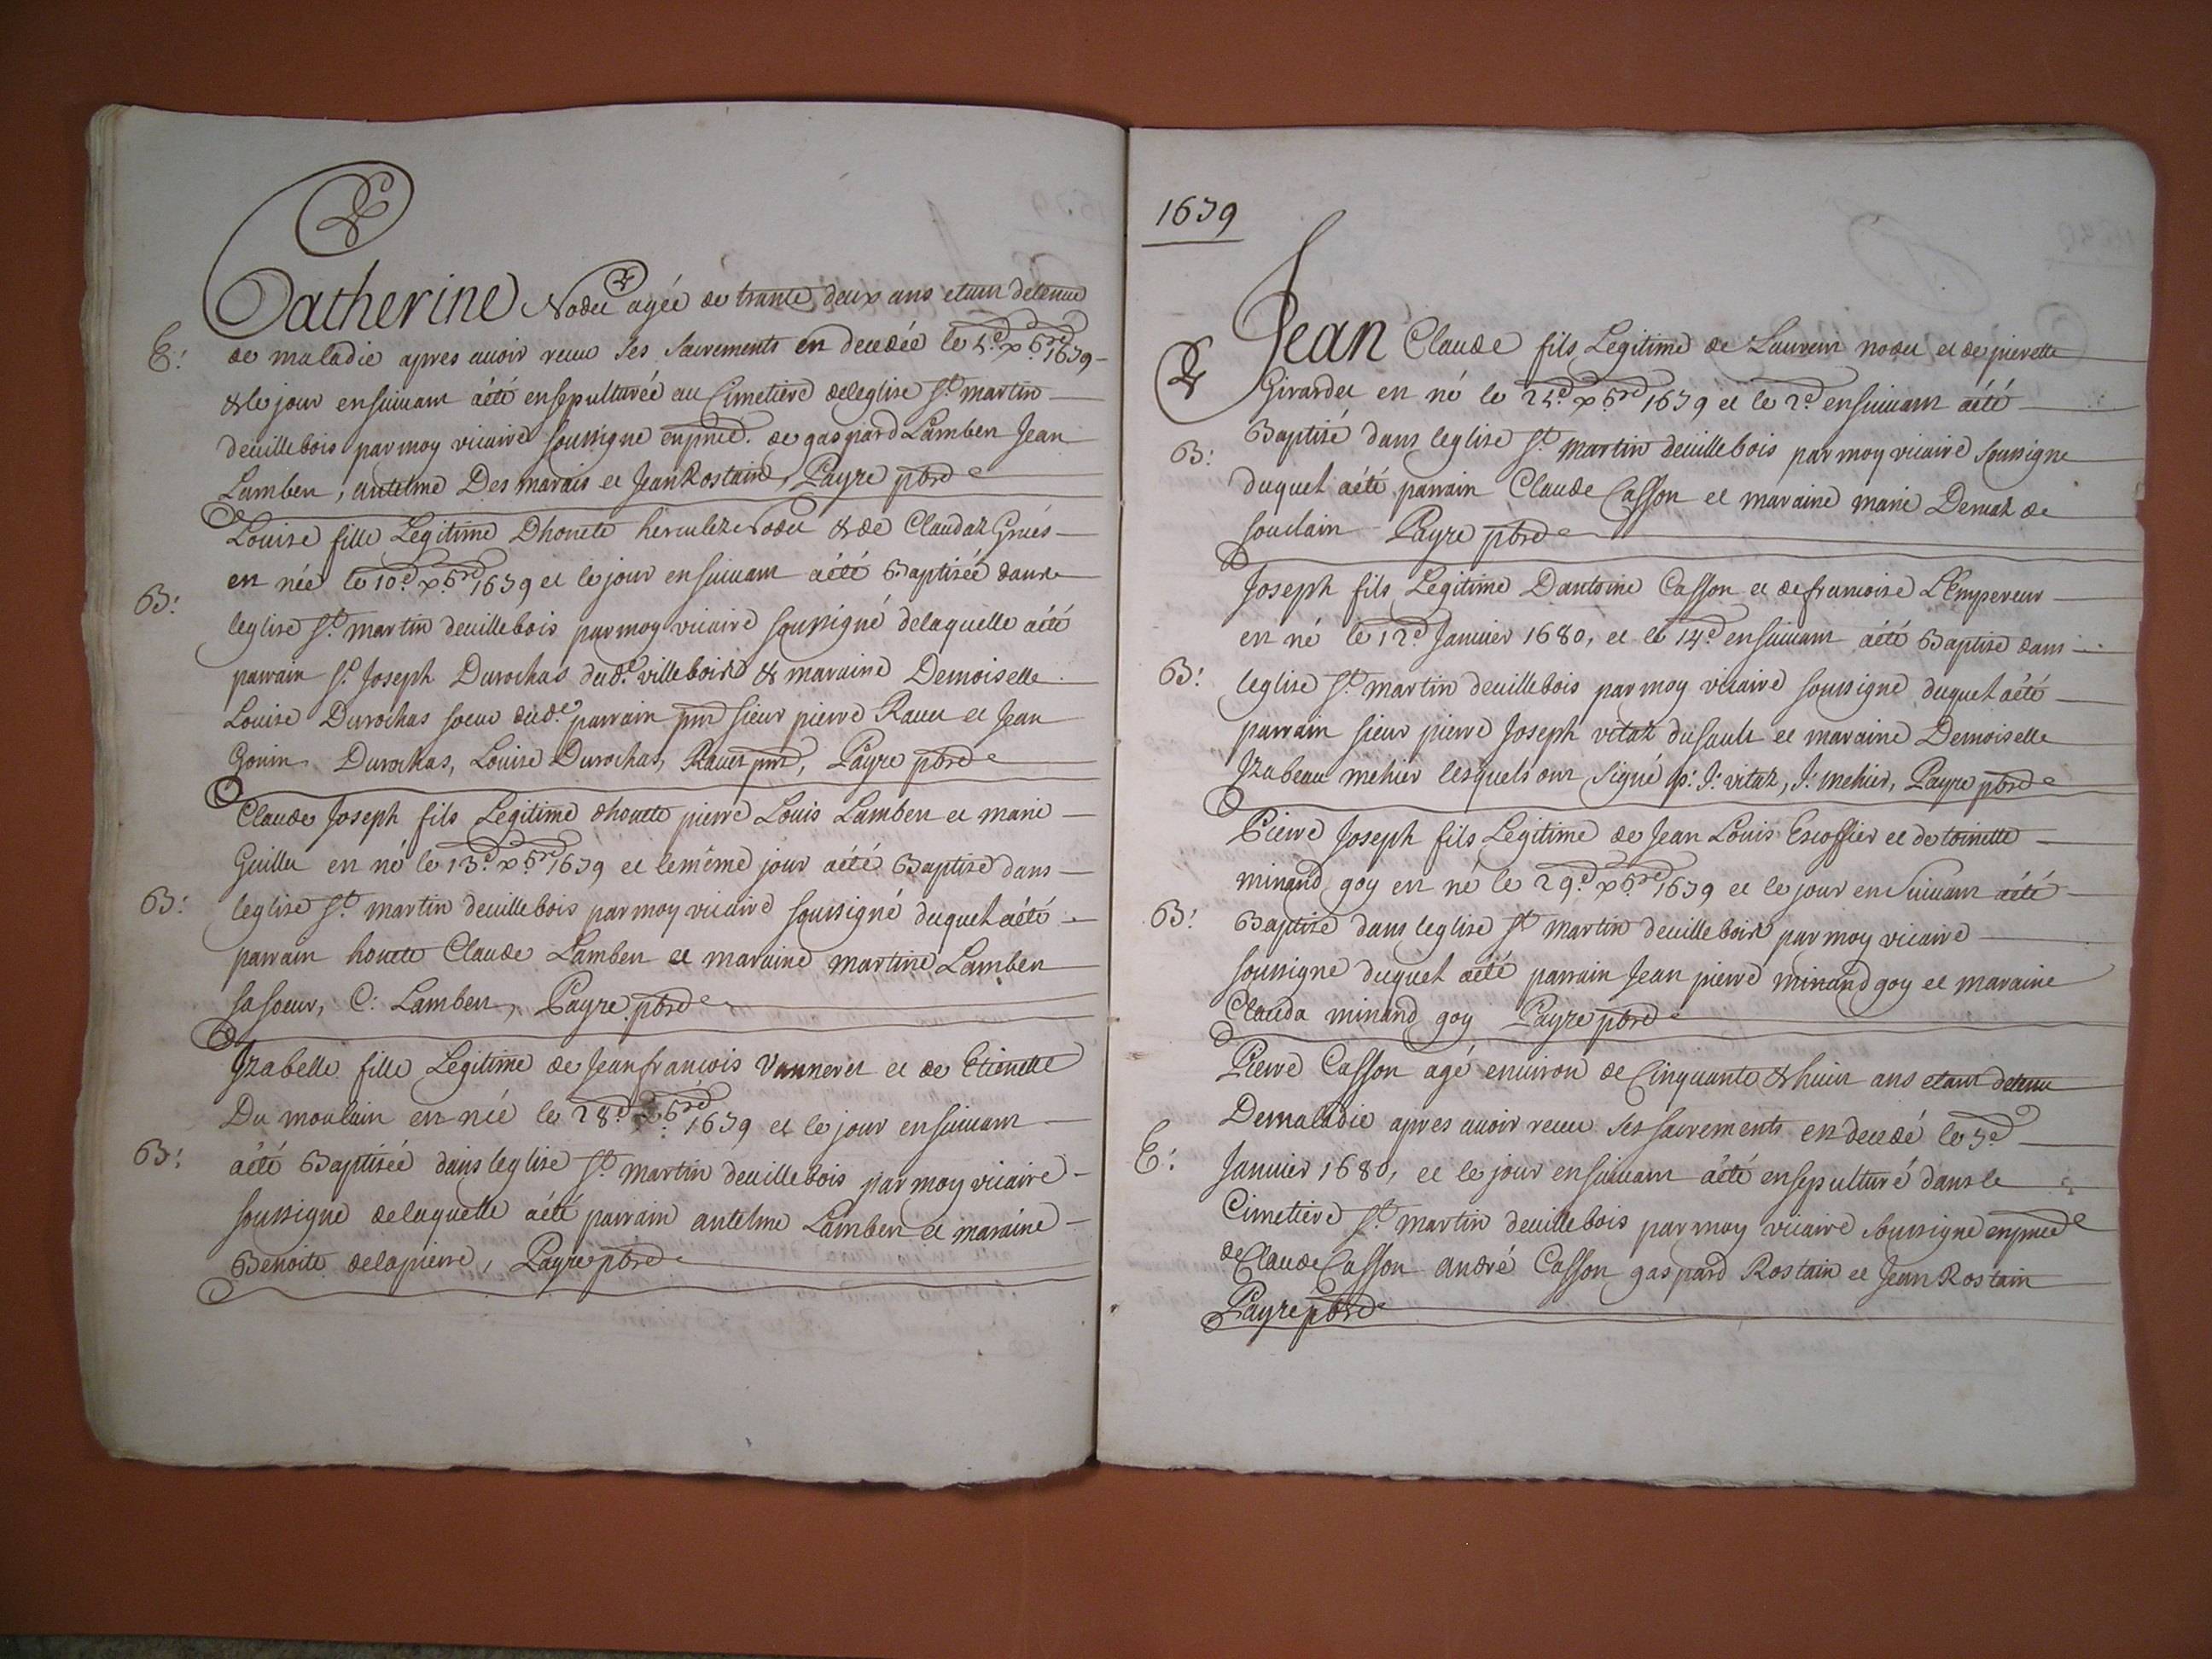 Catherine Nodet agée de trante deux ans etant detenue
E: de maladie apres auoir receu ses sacrements en decedée le 5.e xbre 1679
& le jour ensuiuant aété ensepulturée au Cimetiere deleglise st. martin
deuillebois par moy vicaire soussigne enpnce. de gaspard Lambert Jean
Lambert, antelme Des marais et Jean Rostaind, Payre pbre
Louise fille Legitime Dhonete herculeze Nodet & de Claudaz Gines
en née le 10.e xbre 1679 et le jour ensuiuant aété Baptisée dans
B: leglise st. martin deuillebois par moy vicaire soussigné delaquelle aété
parrain sr. Joseph Durochas dud. villebois & maraine Demoiselle
Louise Durochas soeur dud. parrain pnt sieur pierre Rauet et Jean
Gonin. Durochas, Louise Durochas, Rauet pnt, Payre pbre
Claude Joseph fils Legitime dhonete pierre Louis Lambert et marie
Guillet en né le 13.e xbre 1679 et le même jour aété Baptisé dans
B: leglise st. martin deuillebois par moy vicaire soussigné duquel aété
parrain honete Claude Lambert et maraine martine Lambert
sa soeur, C: Lambert, Payre pbre
Izabelle fille Legitime de Jean francois Vanneret et de Etienette
Du moulain en née le 28.e xbre 1679 et le jour ensuiuant
B: aété Baptisée dans leglise st. martin deuillebois par moy vicaire
soussigne delaquelle aété parrain antelme Lambert et maraine
Benoite delapierre, Payre pbre
1679
Jean Claude fils Legitime de Laurent nodet et de pierette
Girardet en né le 25.e xbre 1679 et le 2.e ensuiuant aété
B: Baptisé dans leglise st. martin deuillebois par moy vicaire soussigne
duquel aété parrain Claude Casson et maraine marie Demaz de
souclain Payre pbre
Joseph fils Legitime Dantoine Casson et de francoise L'Empereur
en né le 12.e Januier 1680, et le 14.e ensuiuant aété Baptisé dans
B: leglise st. martin deuillebois par moy vicaire soussigné duquel aété
parrain sieur pierre Joseph vitaz dusault et maraine Demoiselle
Izabeau mehier lesquels ont signé p: J: vitaz, J: mehier, Payre pbre
Pierre Joseph fils Legitime de Jean Louis Escoffier et de toinette
minand goy en né le 29.e xbre 1679 et le jour ensuiuant aété
B: Baptisé dans leglise st. martin deuillebois par moy vicaire
soussigne duquel aété parrain Jean pierre minand goy et maraine
Clauda minand goy Payre pbre
Pierre Casson agé enuiron de Cinquante & huit ans etant detenu
Demaladie apres auoir receu ses sacrements en decedé le 7.e
E: Januier 1680, et le jour ensuiuant aété ensepulturé dans le
Cimetiere st. martin deuillebois par moy vicaire soussigne enpnce
de Claude Casson andré Casson gaspard Rostain et Jean Rostain
Payre pbre